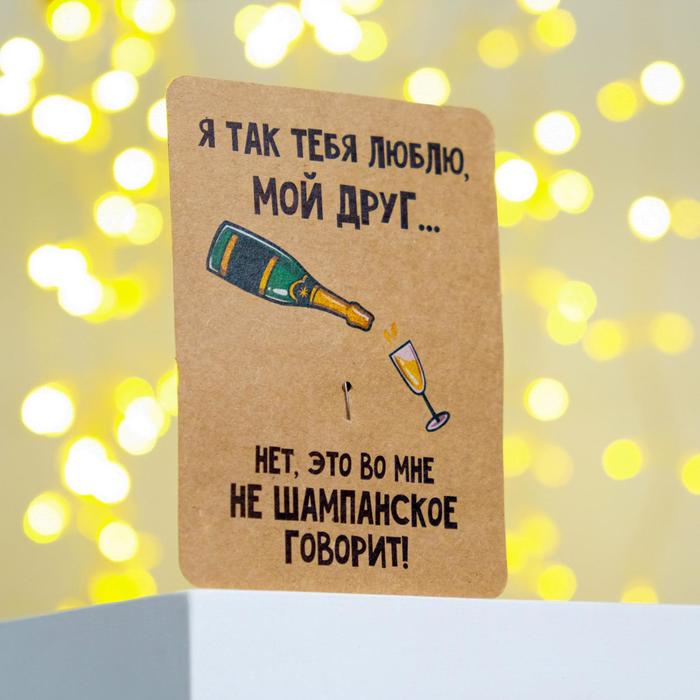 Я ТАК ТЕБЯ ЛЮБЛЮ,
МОЙ ДРУГ...
НЕТ, ЭТО ВО МНЕ
НЕ ШАМПАНСКОЕ
ГОВОРИТ!